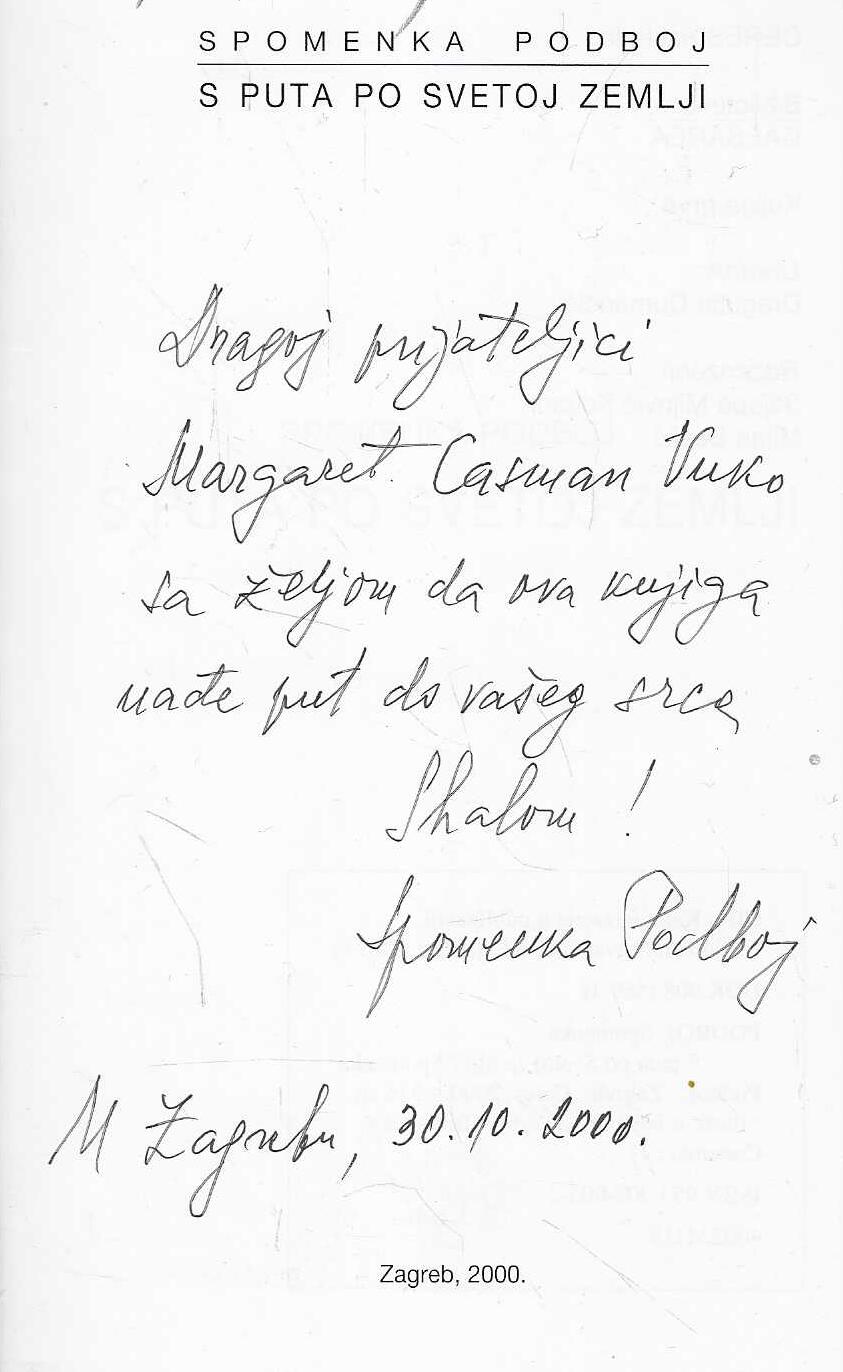 SPOMENKA PODBOJ
S PUTA PO SVETOJ ZEMLJI
Dragoj prijateljici
Margaret Casman Vuko
sa željom da ova knjiga
nađe put do vašeg srca
Shalom!
Spomenka Podboj
U Zagrebu, 30.10.2000.
Zagreb, 2000.